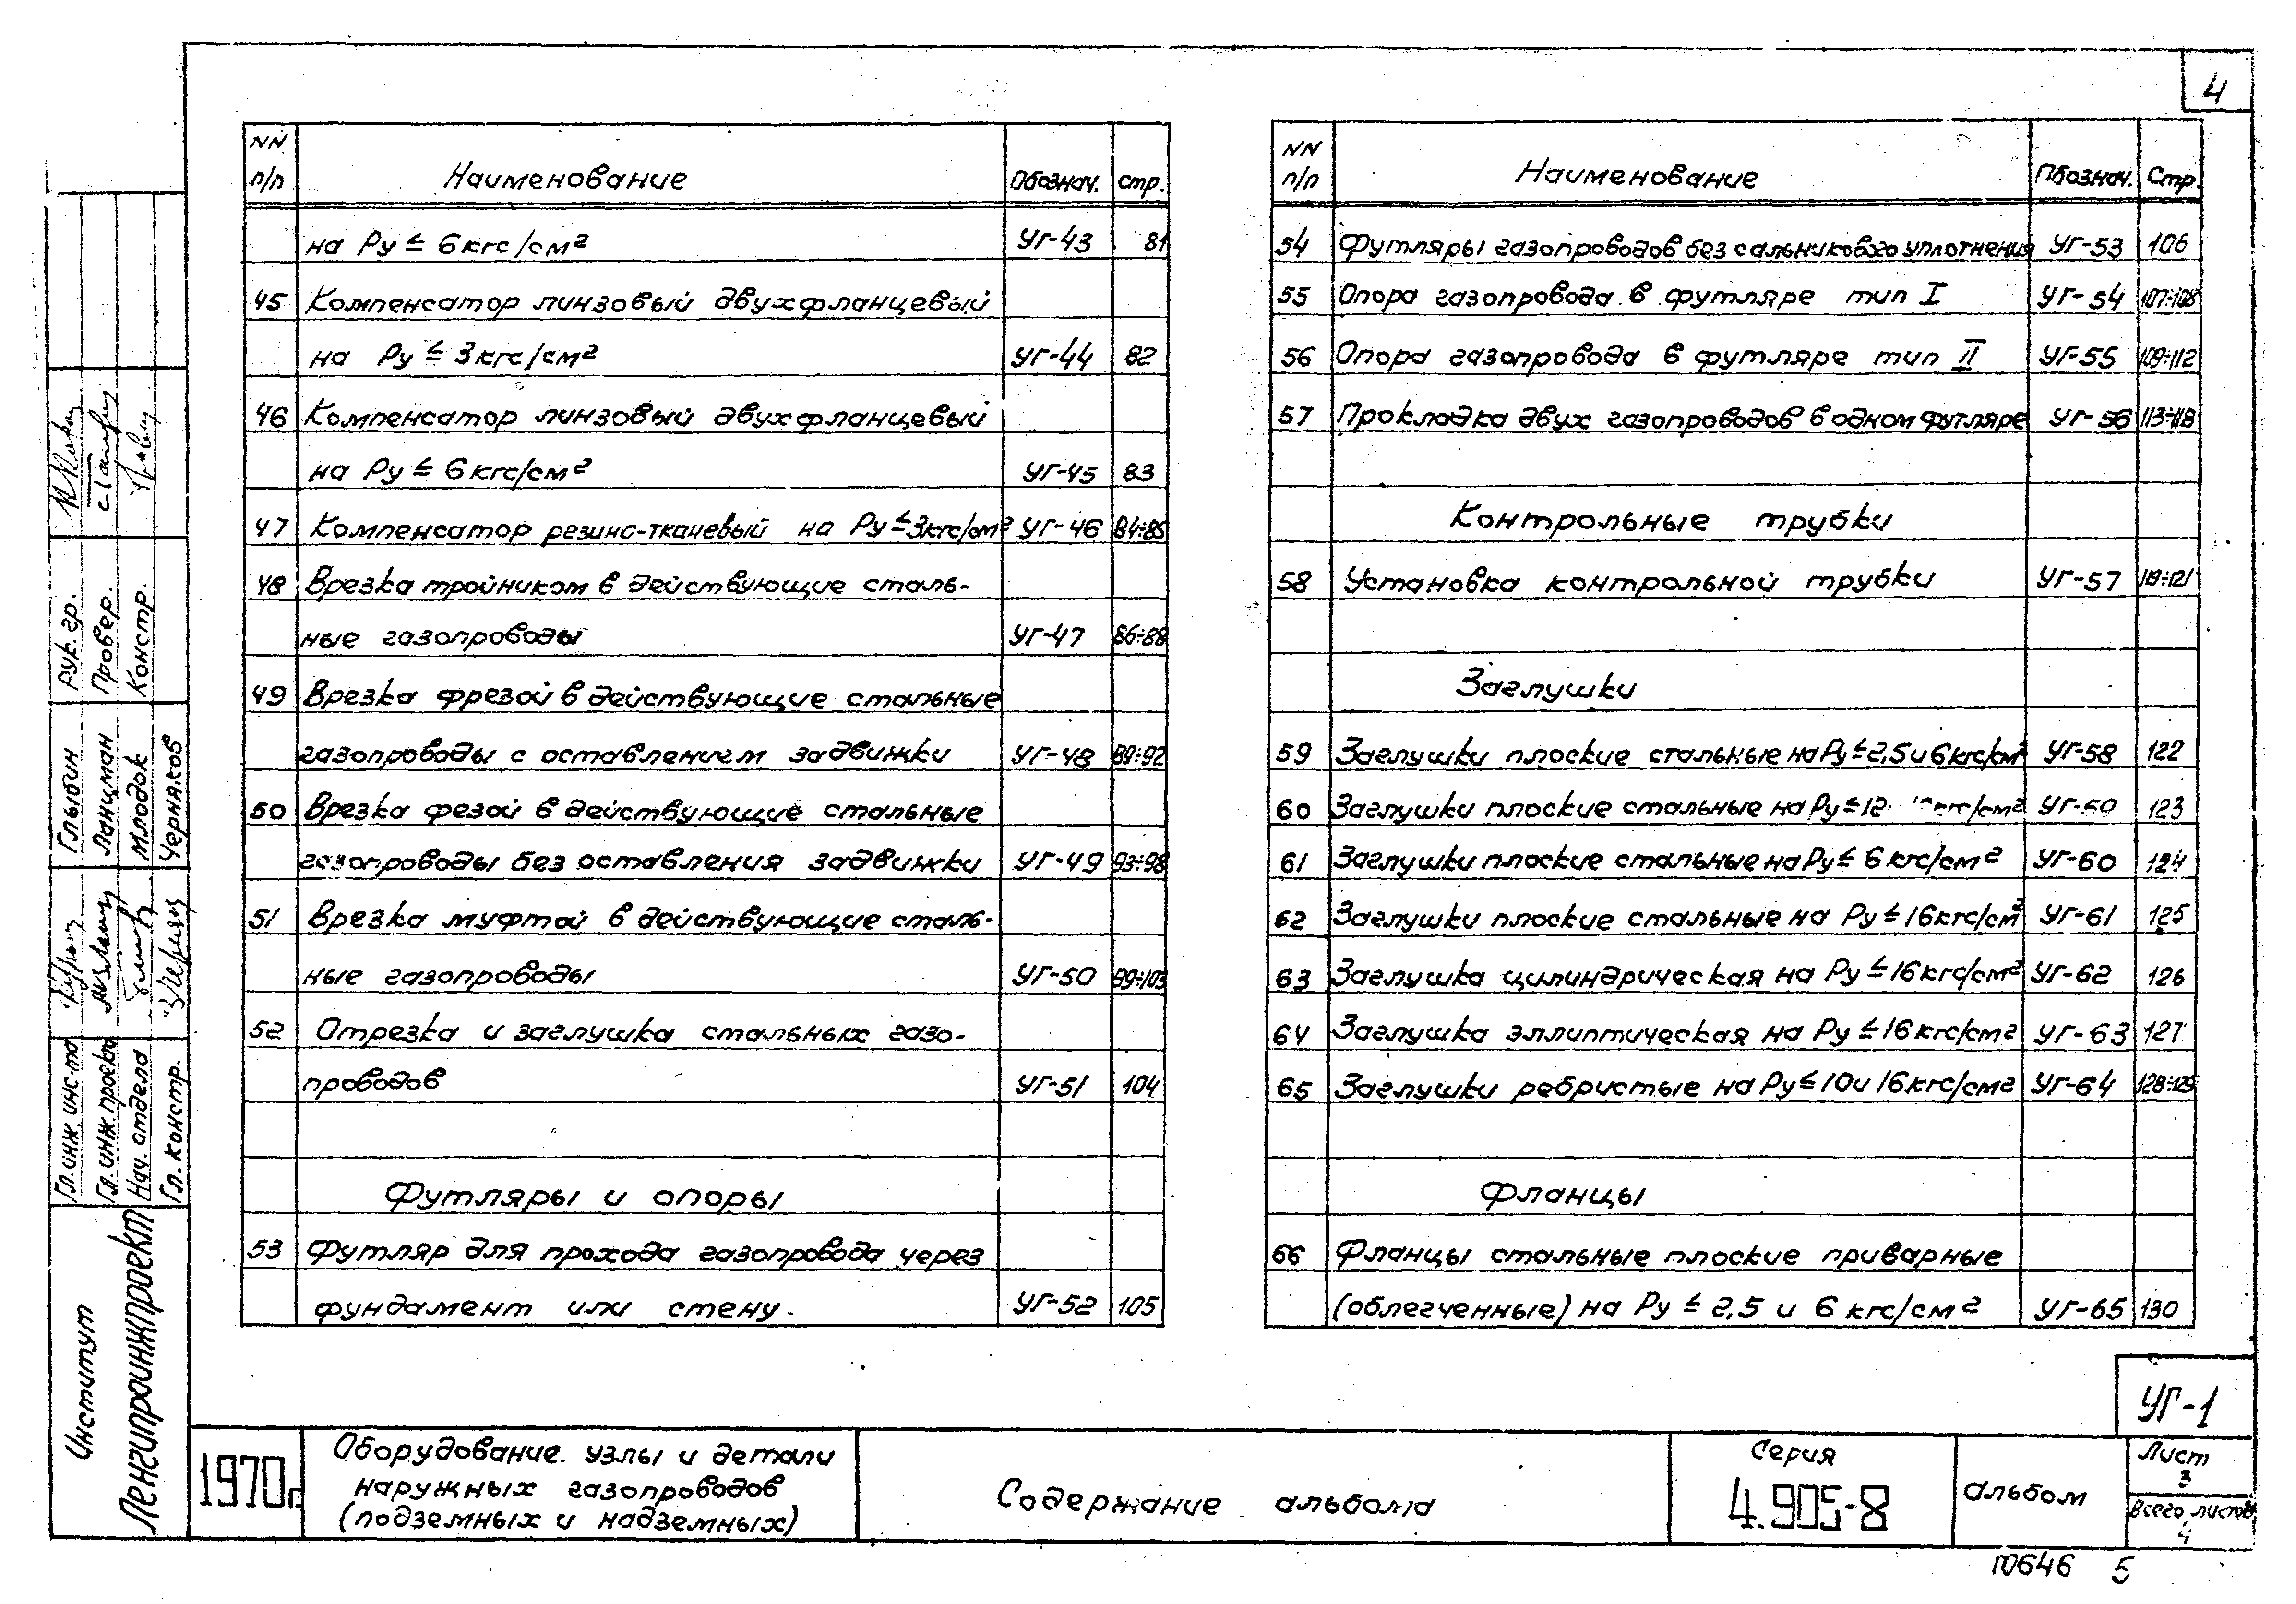 4
NN п/п Наименование Обознач. стр.
на Ру ≤ 6 кгс/см² УГ-43 81
45 Компенсатор линзовый двухфланцевый
на Ру ≤ 3 кгс/см² УГ-44 82
46 Компенсатор линзовый двухфланцевый
на Ру ≤ 6 кгс/см² УГ-45 83
47 Компенсатор резино-тканевый на Ру ≤ 3 кгс/см² УГ-46 84÷85
48 Врезка тройником в действующие сталь-
ные газопроводы УГ-47 86÷88
49 Врезка фрезой в действующие стальные
газопроводы с оставлением задвижки УГ-48 89÷92
50 Врезка фезой в действующие стальные
газопроводы без оставления задвижки УГ-49 93÷98
51 Врезка муфтой в действующие сталь-
ные газопроводы УГ-50 99÷103
52 Отрезка и заглушка стальных газо-
проводов УГ-51 104
Футляры и опоры
53 Футляр для прохода газопровода через
фундамент или стену. УГ-52 105
NN п/п Наименование Обознач. Стр.
54 Футляры газопроводов без сальникового уплотнения УГ-53 106
55 Опора газопровода в футляре тип I УГ-54 107÷108
56 Опора газопровода в футляре тип II УГ-55 109÷112
57 Прокладка двух газопроводов в одном футляре УГ-56 113÷118
Контрольные трубки
58 Установка контрольной трубки УГ-57 119÷121
Заглушки
59 Заглушки плоские стальные на Ру ≤ 2,5 и 6 кгс/см² УГ-58 122
60 Заглушки плоские стальные на Ру ≤ кгс/см² 123
61 Заглушки плоские стальные на Ру ≤ 6 кгс/см² УГ-60 124
62 Заглушки плоские стальные на Ру ≤ 16 кгс/см² УГ-61 125
63 Заглушка цилиндрическая на Ру ≤ 16 кгс/см² УГ-62 126
64 Заглушка эллиптическая на Ру ≤ 16 кгс/см² УГ-63 127
65 Заглушки ребристые на Ру ≤ 10 и 16 кгс/см² УГ-64 128÷129
Фланцы
66 Фланцы стальные плоские приварные
(облегченные) на Ру ≤ 2,5 и 6 кгс/см² УГ-65 130
Рук. гр.
Провер.
Констр.
Глыбин
Ланцман
Млодок
Черняков
Гл. инж. инс-та
Гл. инж. проекта
Нач. отдела
Гл. констр.
Институт
Ленгипроинжпроект
УГ-1
1970г.
Оборудование. узлы и детали
наружных газопроводов
(подземных и надземных)
Содержание альбома
Серия
4.905-8
альбом
Лист
3
Всего листов
4
10646 5